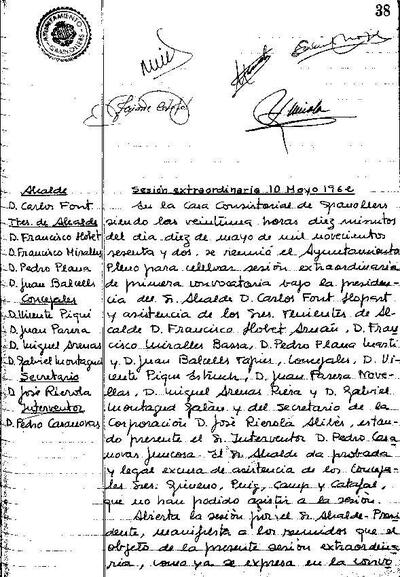 38
AYUNTAMIENTO
GRANOLLERS
Alcalde
D. Carlos Font
Ttes. de Alcalde
D. Francisco Llobet
D. Francisco Miralles
D. Pedro Plana
D. Juan Balcells
Concejales
D. Vicente Piqui
D. Juan Parera
D. Miguel Arenas
D. Gabriel Montagud
Secretario
D. José Rierola
Interventor
D. Pedro Casanovas
Sesión extraordinaria 10 Mayo 1962
En la Casa Consistorial de Granollers
siendo las veintiuna horas diez minutos
del día diez de mayo de mil novecientos
sesenta y dos, se reunió el Ayuntamiento
Pleno para celebrar sesión extraordinaria
de primera convocatoria bajo la presiden-
cia del Sr. Alcalde D. Carlos Font Llopart
y asistencia de los Sres. Tenientes de Al-
calde D. Francisco Llobet Arnán, D. Fran-
cisco Miralles Bassa, D. Pedro Plana Martí
y D. Juan Balcells Tapies, Concejales, D. Vi-
cente Piqui Estruch, D. Juan Parera Nove-
llas, D. Miguel Arenas Riera y D. Gabriel
Montagud Galán y del Secretario de la
Corporación D. José Rierola Alibés, estan-
do presente el Sr. Interventor D. Pedro Casa
novas Juncosa. El Sr. Alcalde da probada
y legal excusa de asistencia de los Conceja-
les Sres. Puig, Camp y Catafal,
que no han podido asistir a la sesión.
Abierta la sesión por el Sr. Alcalde-Presi-
dente, manifiesta a los reunidos que el
objeto de la presente sesión extraordina-
ria, como ya se expresa en la convo